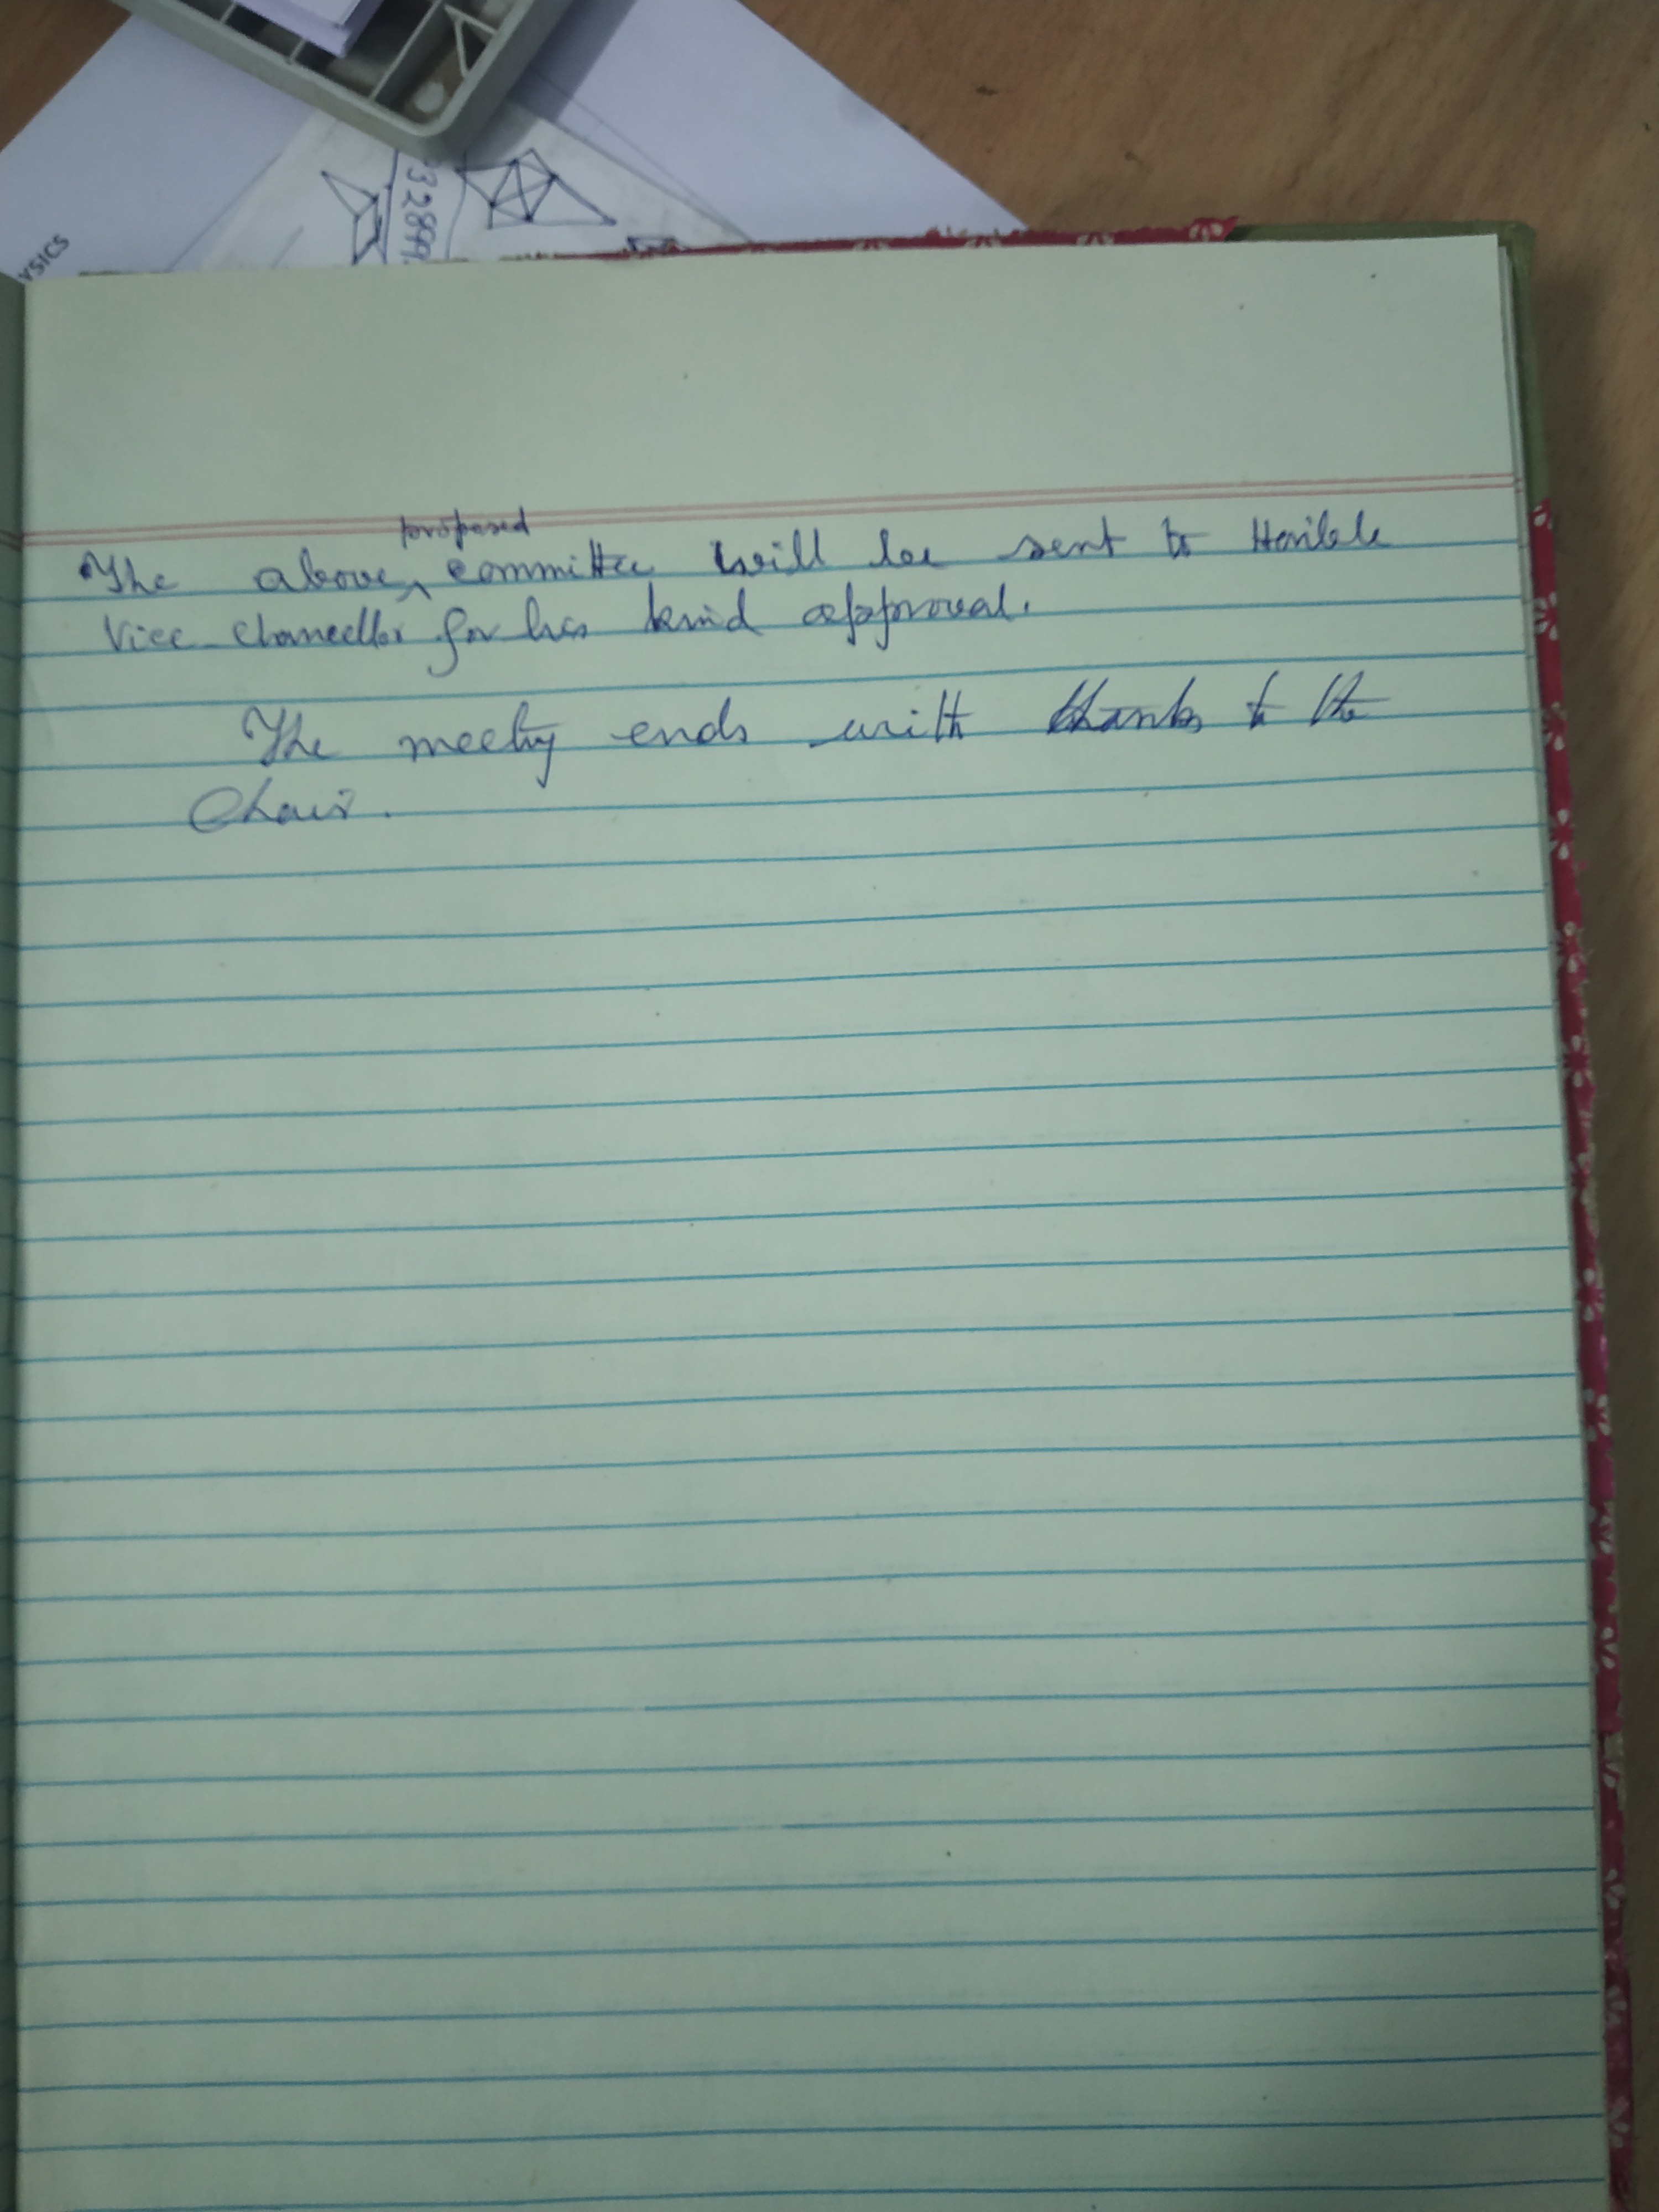 YSICS
32899
proposed
The above ^ committee will be sent to Hon'ble
Vice-Chancellor for his kind approval.
The meeting ends with thanks to the
Chair.